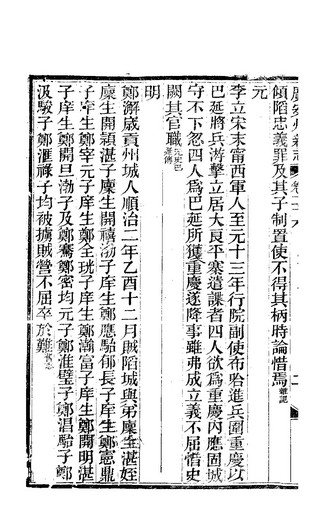 廣安州新志 卷二十六
傾陷忠義罪及其子制置使不得其柄時論惜焉雜記
元
李立宋末甯西軍人至元十三年行院副使布哈進兵圍重慶以
巴延將兵游擊立居大良平寨遣諜者四人欲為重慶内應固城
守不下忽四人為巴延所獲重慶遂降事雖弗成立義不屈惜史
闕其官職
明
鄭澥歲貢州城人順治二年乙酉十二月賊陷城與弟廩生湛姪
廩生開潁湛子廩生開禧渤子庠生鄭應駘郁長子庠生鄭憲鼎
子庠生鄭宰元子庠生鄭全珖子庠生鄭瀚富子庠生鄭開明湛
子庠生鄭開旦渤子及鄭騫鄭密均元子鄭淮璧子鄭淐駘子鄭
汲駿子鄭滙祿子均被擄賊營不屈卒於難